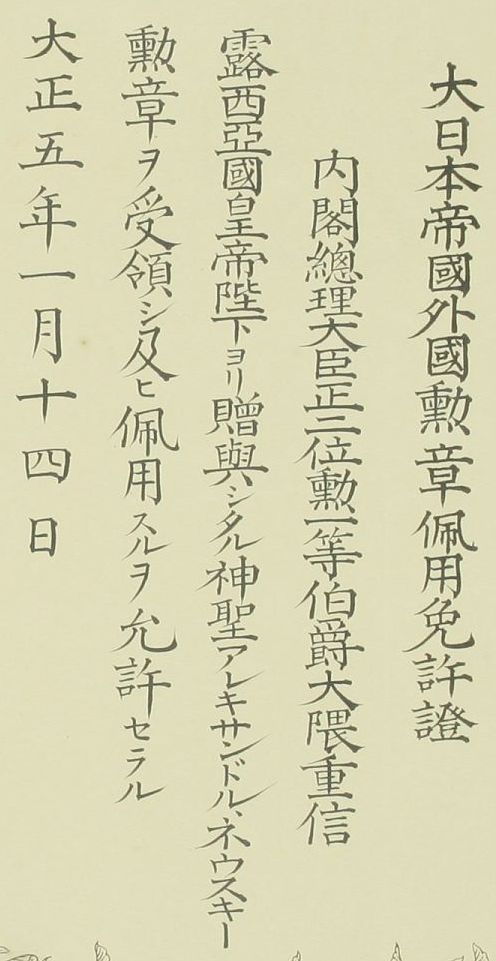 大日本帝國外國勲章佩用免許證
内閣總理大臣正二位勲一等伯爵大隈重信
露西亞國皇帝陛下ヨリ贈與シタル神聖アレキサンドル、ネウスキー
勲章ヲ受領シ及ヒ佩用スルヲ允許セラル
大正五年一月十四日